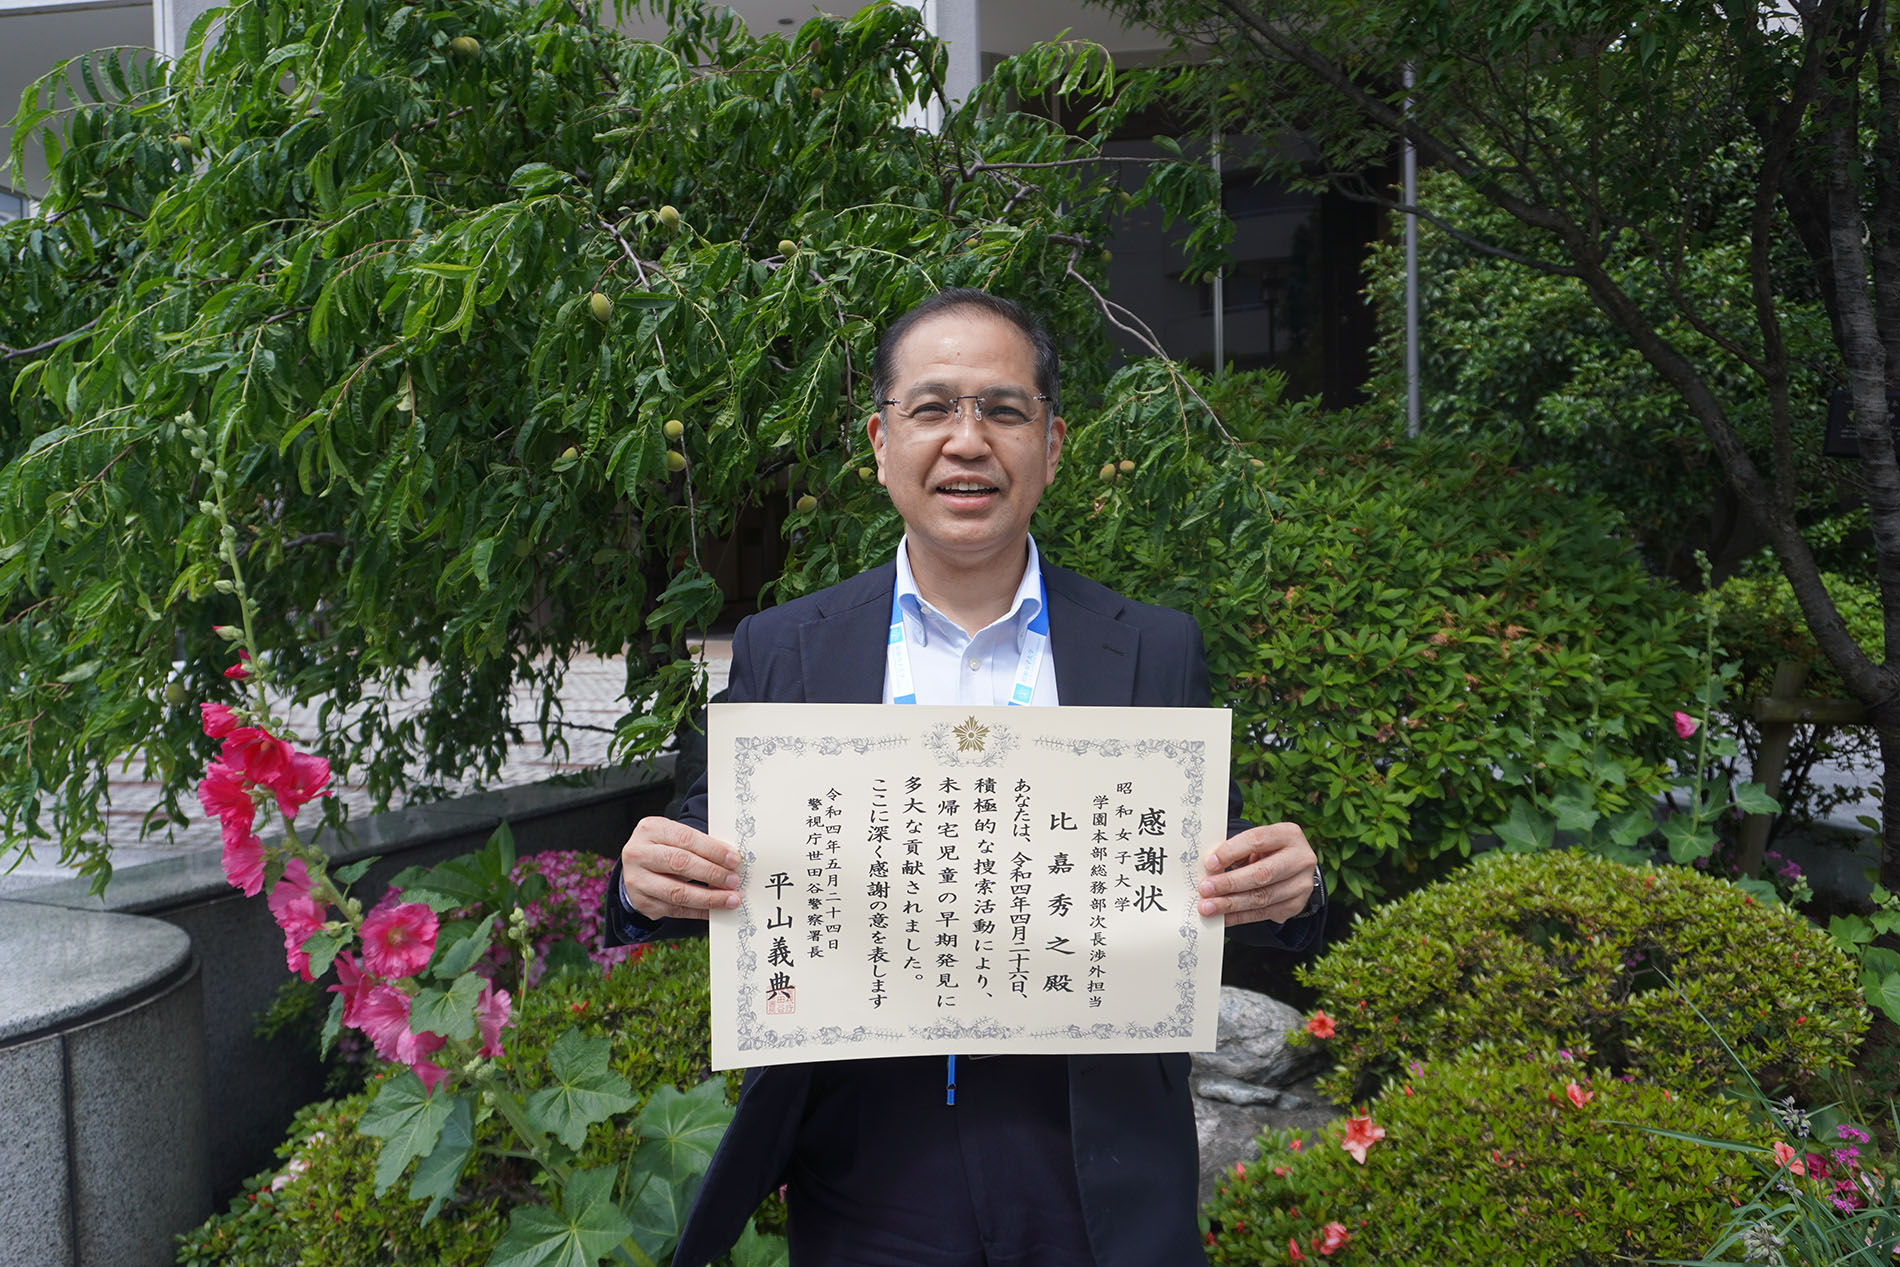 感謝状
昭和女子大学
学園本部総務部次長渉外担当
比嘉秀之殿
あなたは、令和四年四月二十六日、
積極的な捜索活動により、
未帰宅児童の早期発見に
多大な貢献されました。
ここに深く感謝の意を表します
令和四年五月二十四日
警視庁世田谷警察署長
平山義典